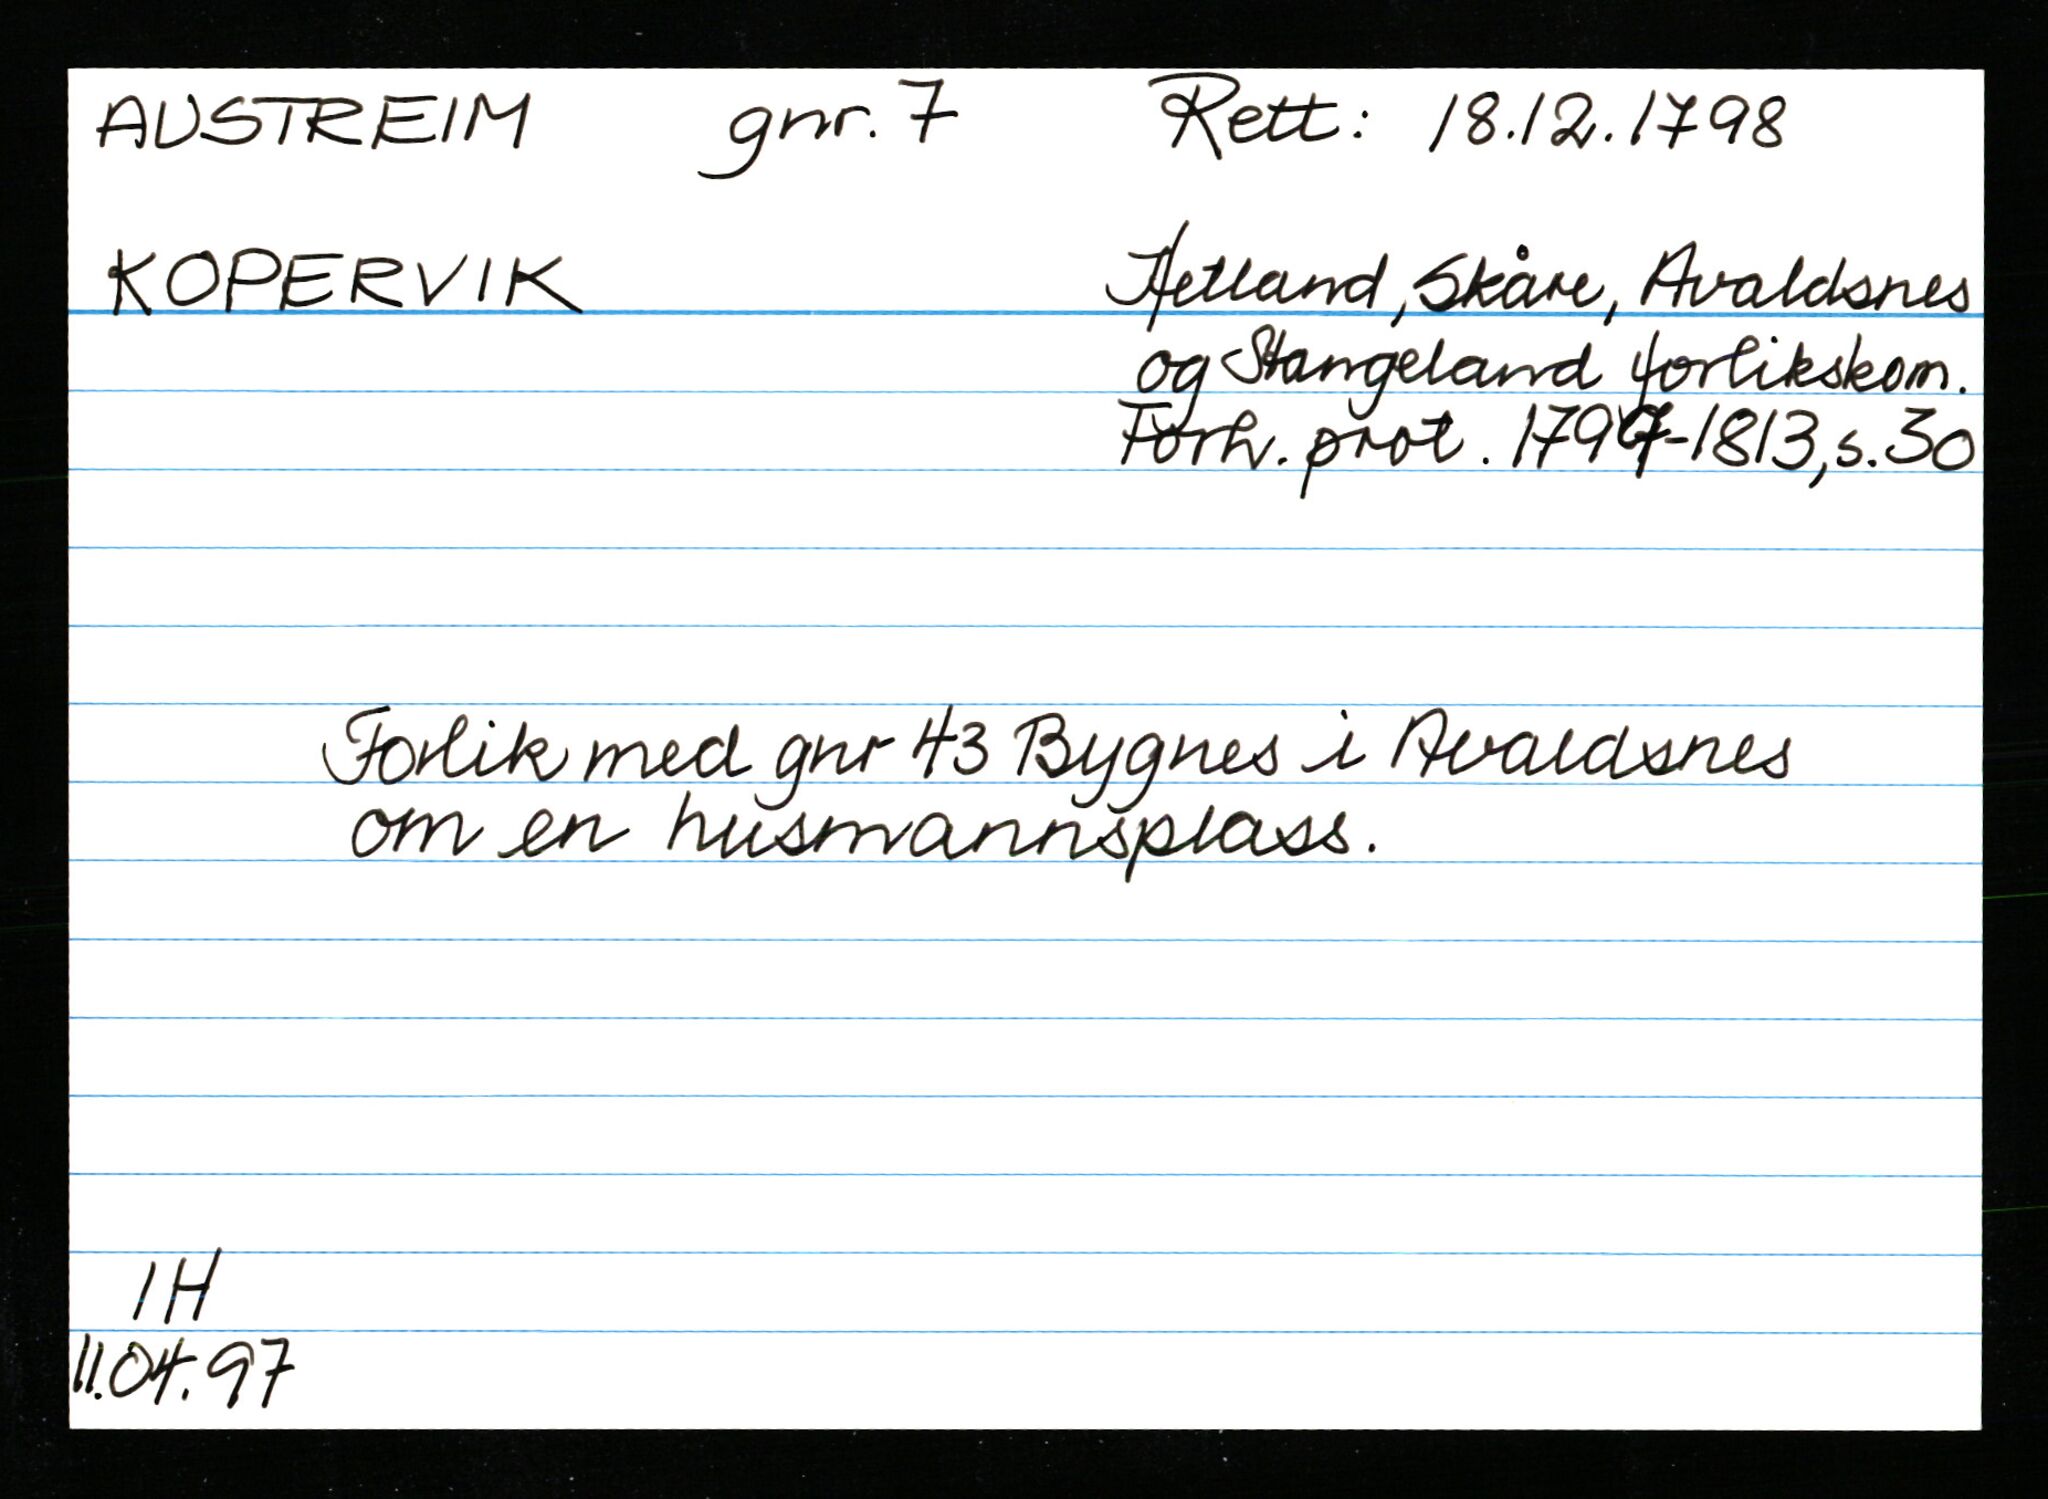 AUSTREIM gnr. 7 Rett: 18.12.1798
KOPERVIK Hetland, Skåre, Avaldsnes
og Stangeland forlikskom.
Forh. prot. 1797-1813, s. 30
Forlik med gnr 43 Bygnes i Avaldsnes
om en husmannsplass.
IH
11.04.97